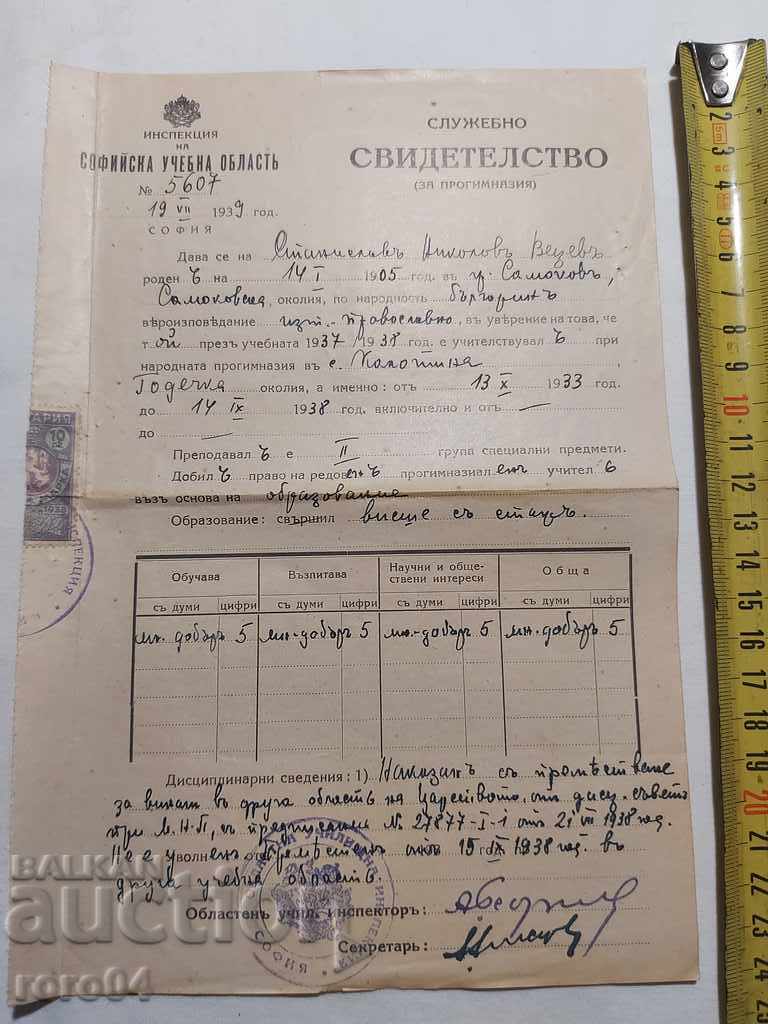 ИНСПЕКЦИЯ
НА
СОФИЙСКА УЧЕБНА ОБЛАСТЬ
№ 5607
19 VII 1939 год.
СОФИЯ
СЛУЖЕБНО
СВИДЕТЕЛСТВО
(ЗА ПРОГИМНАЗИЯ)
Дава се на Станиславъ Николовъ Вецевъ
роденъ на 14 I 1905 год. въ гр. Самоковъ,
Самоковска, околия, по народность българинъ
вѣроизповѣдание изт.-православно, въ уверение на това, че
той презъ учебната 1937/1938 год. е учителствувалъ при
народната прогимназия въ с. Калотина,
Годечка околия, а именно: отъ 13 X 1933 год.
до 14 IX 1938 год. включително и отъ —
до —
Преподавалъ е II група специални предмети.
Добилъ право на редовенъ прогимназиаленъ учител
възъ основа на образование
Образование: свършил висше съ стажъ.
Обучава
Възпитава
Научни и обще-
ствени интереси
Обща
съ думи цифри съ думи цифри съ думи цифри съ думи цифри
мн. добъръ 5 мн.-добъръ 5 мн.-добъръ 5 мн.-добъръ 5
Дисциплинарни сведения: 1) Наказанъ съ премѣстване
за винаги въ друга область на Царството, отъ дисц. съветъ
при М.Н.П, съ предписание № 27877-I-1 отъ 21 VII 1938 год.
Не е уволненъ от премѣстенъ 15 IX 1938 год. въ
друга учебна область.
Областенъ учил. инспекторъ:
Секретарь:
БЪЛГАРИЯ
10
ИНСПЕКЦИЯ
СОФИЯ
BALKAN
auction
roro04
2 3 4 5 6 7 8 9 10 11 12 13 14 15 16 17 18 19 20 21 22 23 24 25